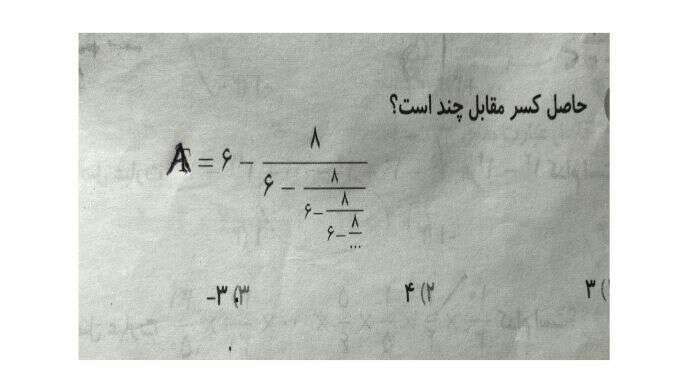 حاصل کسر مقابل چند است؟
A = ۶ - ۸
۶ - ۸
۶ - ۸
۶ - ۸
...
۳ (۱ ۴ (۲ -۳ (۳